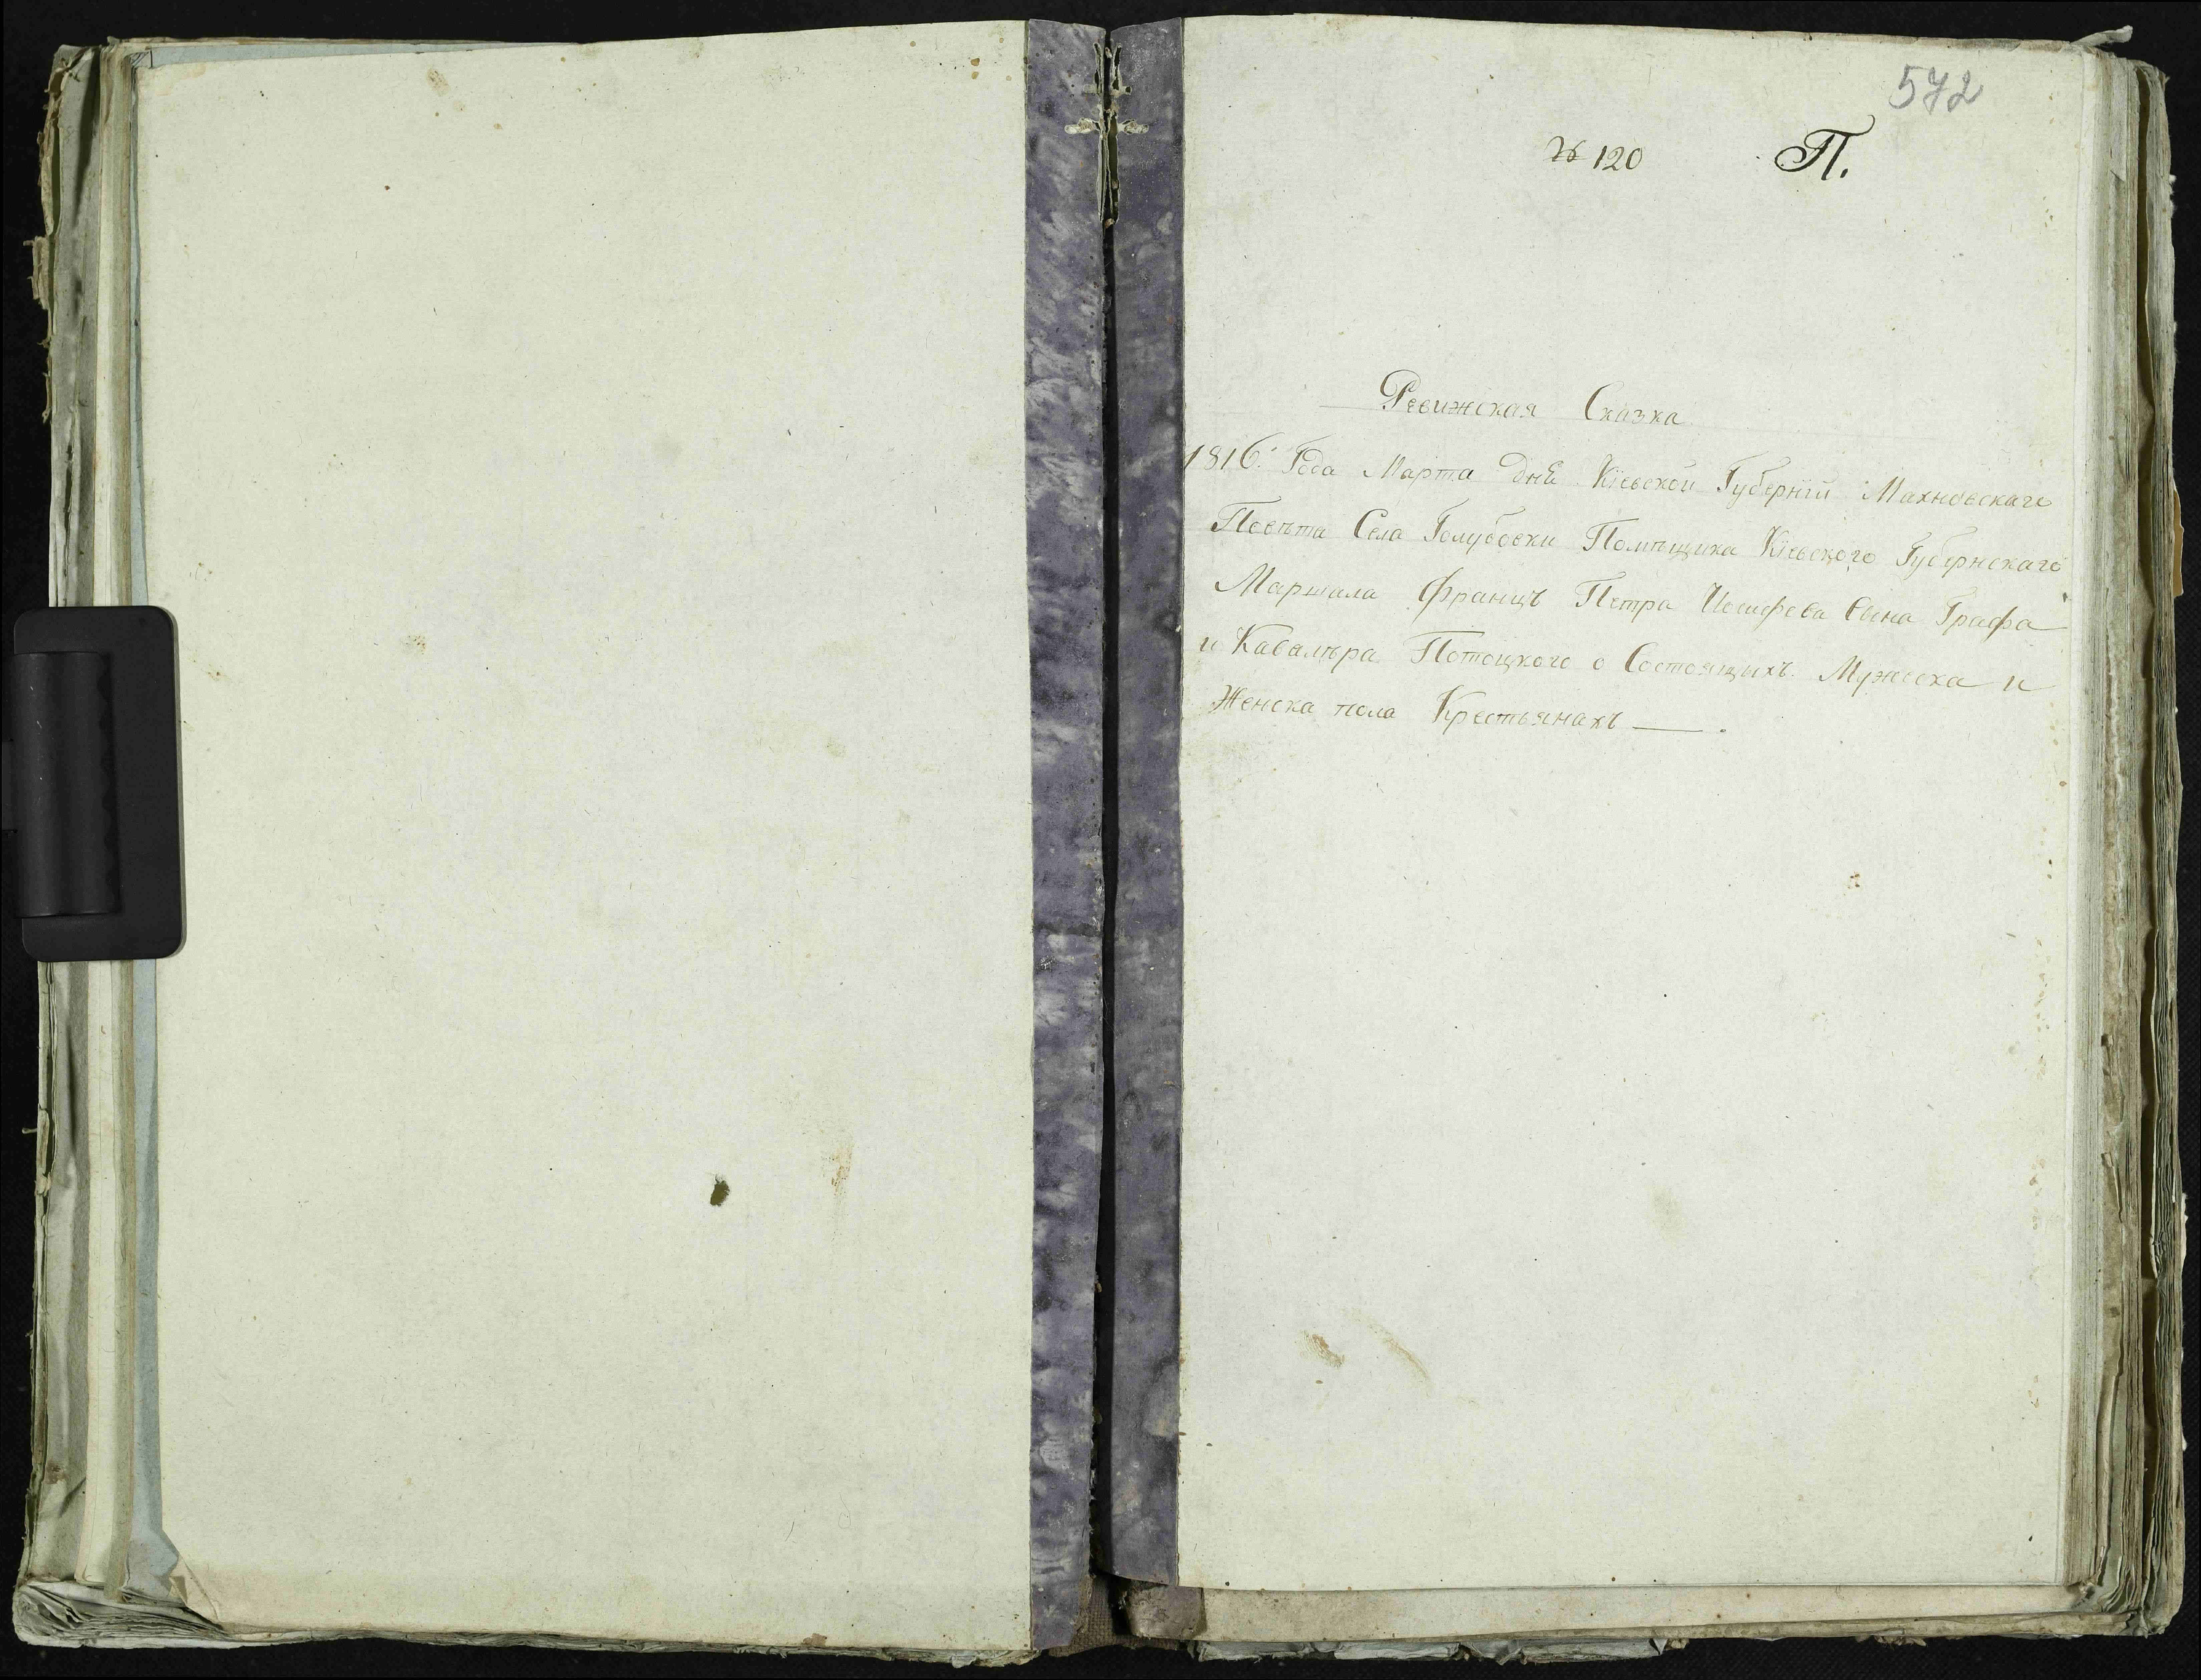 572
№ 120 П.
Ревижская Сказка
1816: Года Марта дня Кіевской Губерніи Махновскаго
Повѣта Села Голубовки Помѣщика Кіевского Губернскаго
Маршала Францъ Петра Иосифова Сына Графа
и Кавалѣра Потоцкого о Состоящихъ Мужеска и
Женска пола Крестьянахъ —— .